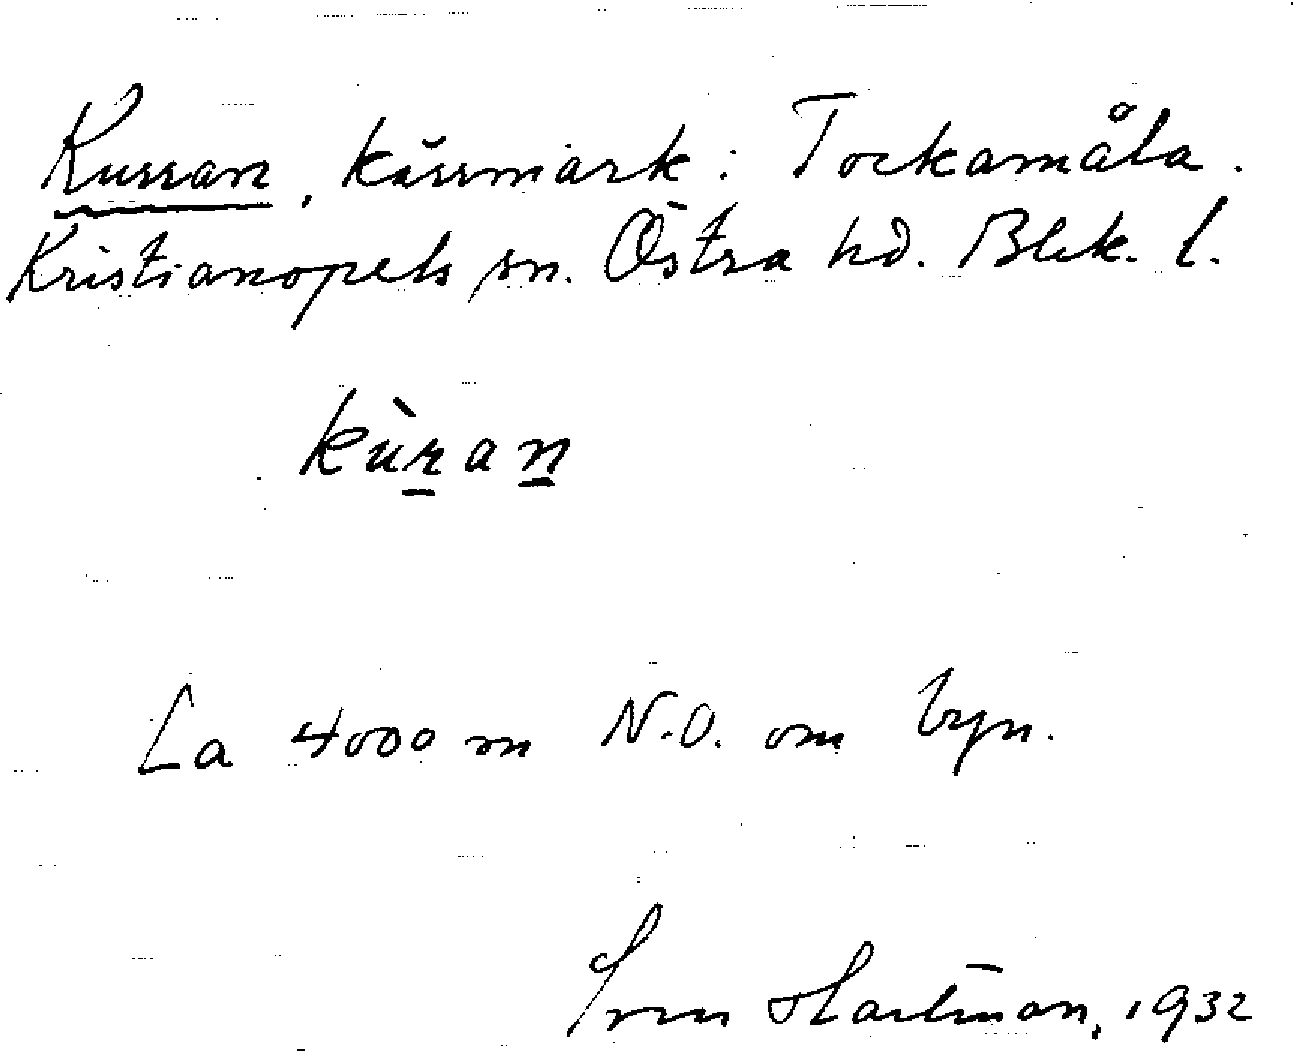 Kurran, kärrmark: Tockamåla.
Kristianopels sn. Östra hd. Blek. l.
kùran
Ca 4000 m N.O. om byn.
Sven Hartman, 1932